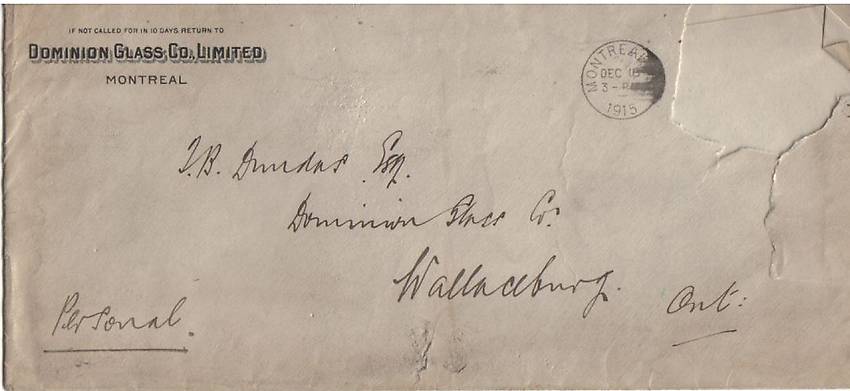 IF NOT CALLED FOR IN 10 DAYS RETURN TO
DOMINION GLASS CO., LIMITED
MONTREAL
MONTREAL
DEC
3 - P
1915
J. B. Dundas Esq.
Dominion Glass Co:
Wallaceburg.
Ont:
Personal.